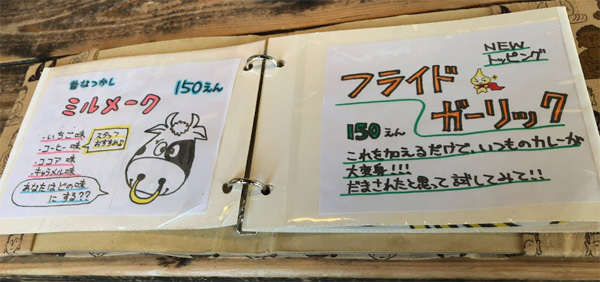 昔なつかし 150えん
ミルメーク
・いちご味
・コーヒー味
・ココア味
・キャラメル味
スタッフ
おすすめよ
あなたはどの味
にする??
NEW
トッピング
フライド
ガーリック
150えん
これを加えるだけで、いつものカレーが
大変身!!!
だまされたと思って試してみて!!